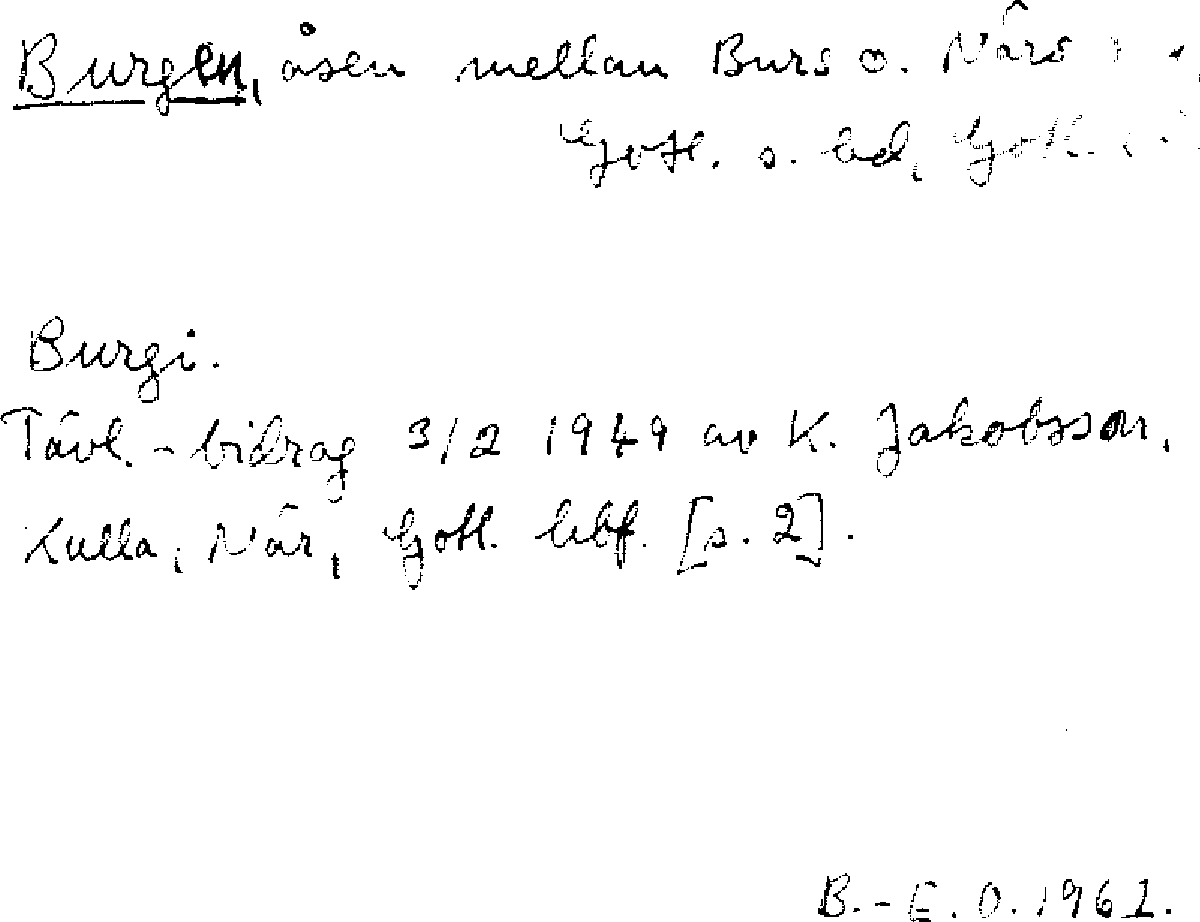 Burgen, åsen mellan Burs o. Närs
Gotl. s. hd, Gotl.
Burgi.
Tävl.-bidrag 3/2 1949 av K. Jakobsson,
Kulla, När, Gotl. hbf. [s. 2].
B.-E. O. 1961.